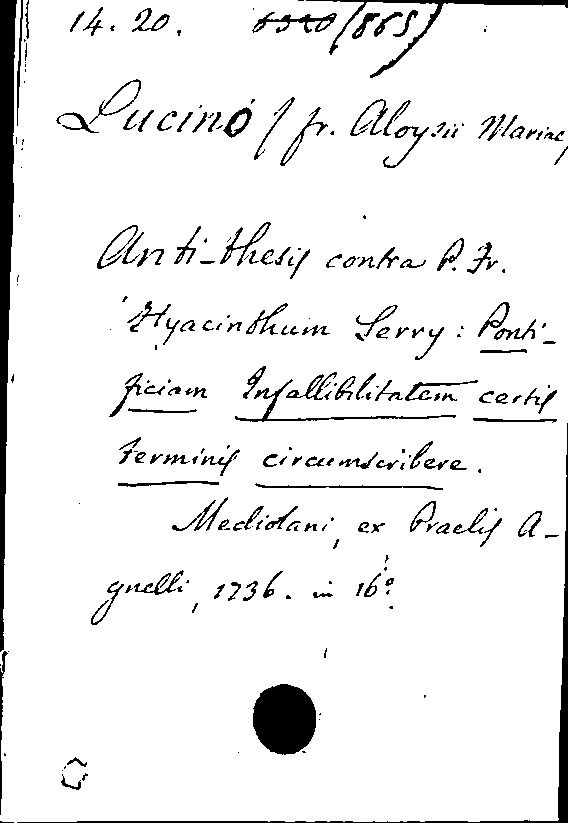 14. 20. (865)
Lucino / fr. Aloysii Mariae,
Anti-thesis contra P. Fr.
Hyacinthum Serry : Ponti-
ficiam Infallibilitatem certis
terminis circumscribere.
Mediolani, ex Praelis A-
gnelli, 1736. in 16º.